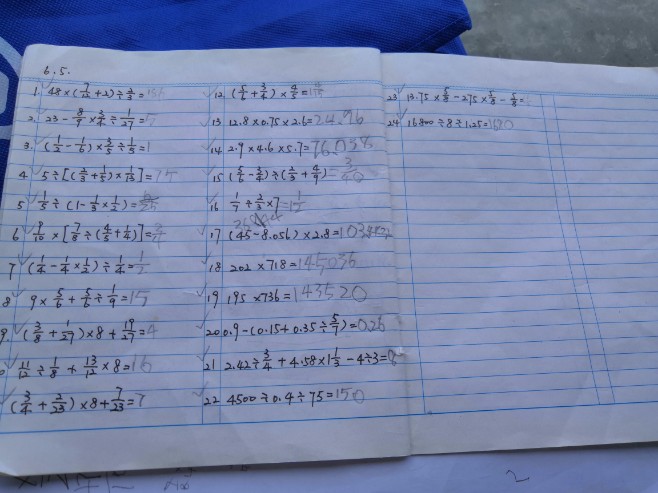 6.5.
1. 48×(7/12+2)÷2/3=186
2. 23-8/9×3/4÷1/27=5
3. (1/2-1/6)×3/5÷1/5=1
4. 5÷[(2/3+1/5)×1/13]=75
5 1/5÷(1-1/3×1/2)=
6 9/10×[7/8÷(4/5+1/4)]=3/4
7 (1/4-1/4×1/2)÷1/4=1/2
8 9×5/6+5/6÷1/9=15
9. (3/8+1/27)×8+19/27=4
11/12÷1/8+13/12×8=16
(3/4+2/23)×8+7/23=7
12. (5/6+3/4)×4/5=
13 12.8×0.75×2.6=24.96
14 2.9×4.6×5.7=76.038
15 (5/6-3/4)÷(2/3+4/9)=3/40
16 1/7÷2/3×7=
17 (45-8.056)×2.8=
18 202×718=145036
19 195×736=143520
20 0.9-(0.15+0.35÷5/7)=0.26
21 2.42÷3/4+4.58×1 1/3-4÷3=8
22 4500÷0.4÷75=150
23 13.75×5/8-2.75×5/8-5/8=
24 16800÷8÷1.25=1680
2